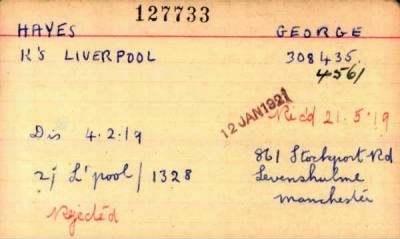 127733
HAYES GEORGE
K'S LIVERPOOL 308435.
4561
12 JAN 1921
Rec'd 21.5.19
Dis 4.2.19
861 Stockport Rd
2/ L'pool/1328
Levenshulme
Manchester
Rejected